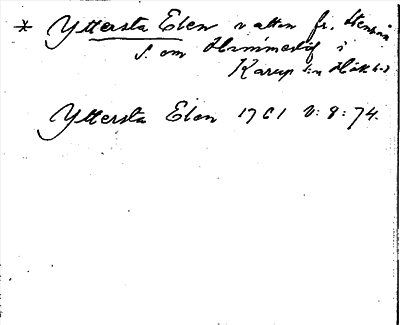 * Yttersta Elen vatten fr. Stenån
S. om Hammarlöf i
Karup s:n
Yttersta Elen 1761 V: 8: 74.